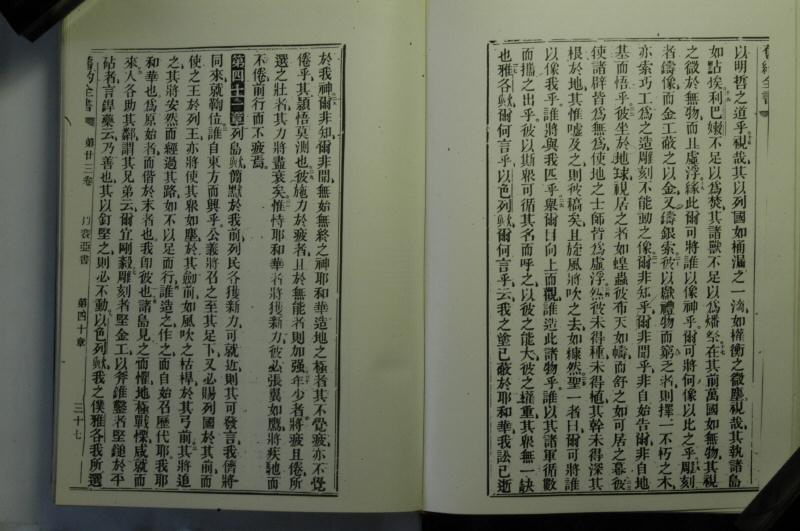 舊約全書
以明哲之道乎視哉其以列國如桶漏之一滴如權衡之微塵視哉其執諸島
如點埃利巴嫩不足以爲焚其諸獸不足以爲燔祭在其前萬國如無物其視
之微於無物而且虛浮緣此爾可將誰以像神乎爾可將何像以此之乎彫刻
者鑄像而金工蔽之以金又鑄銀索彼以獻禮物而窮乏之者則擇一不朽之木
亦索巧工爲之造雕刻不能動之像爾非知乎爾非聞乎非自始告爾非自地
基而悟乎彼坐於地球視居之者如蝗蟲彼布天如幬而舒之如可居之幕彼
使諸辟皆爲無爲使地之士師皆爲虛浮然彼未得種未得植其幹未得深其
根於地其惟噓及之則彼稿矣且旋風將吹之去如糠然聖一者曰爾可將誰
以像我乎誰將與我匹乎舉爾目向上而觀誰造此諸物乎誰以其諸軍循數
而攜之出乎彼以斯眾可循其名而呼之以彼之能大彼之權重其眾無一缺
也雅各歟爾何言乎以色列歟爾何言乎云我之塗已蔽於耶和華我訟已逝
於我神爾非知爾非聞無始無終之神耶和華造地之極者其不覺疲亦不覺
倦乎其穎悟莫測也彼施力於疲者且於無能者則加强年少者將疲且倦所
選之壯者其力將盡衰矣惟恃耶和華者將獲新力彼必張翼如鷹將疾馳而
不倦前行而不疲焉
第四十一章列島歟簡默於我前列民各獲新力可就近則其可發言我儕將
同來就鞫位誰自東方而興乎公義將召之至其足下又必賜列國於其前而
使之王於列王亦將使其眾如塵於其劍前如風吹之枯稈於其弓前其將追
之其將安然而經過其路如不以足而行誰造之作之而自始召歷代耶我耶
和華也爲原始者而偕於末者也我卽彼也諸島見之而懼地極戰慄咸就而
來人各助其鄰謂其兄弟云爾宜剛毅雕刻者堅金工以斧錐鑿者堅鎚於平
砧者言銲藥云乃善也其以釘堅之則必不動以色列歟我之僕雅各我所選
舊約全書
第廿三卷
以賽亞書
第四十章
三十七